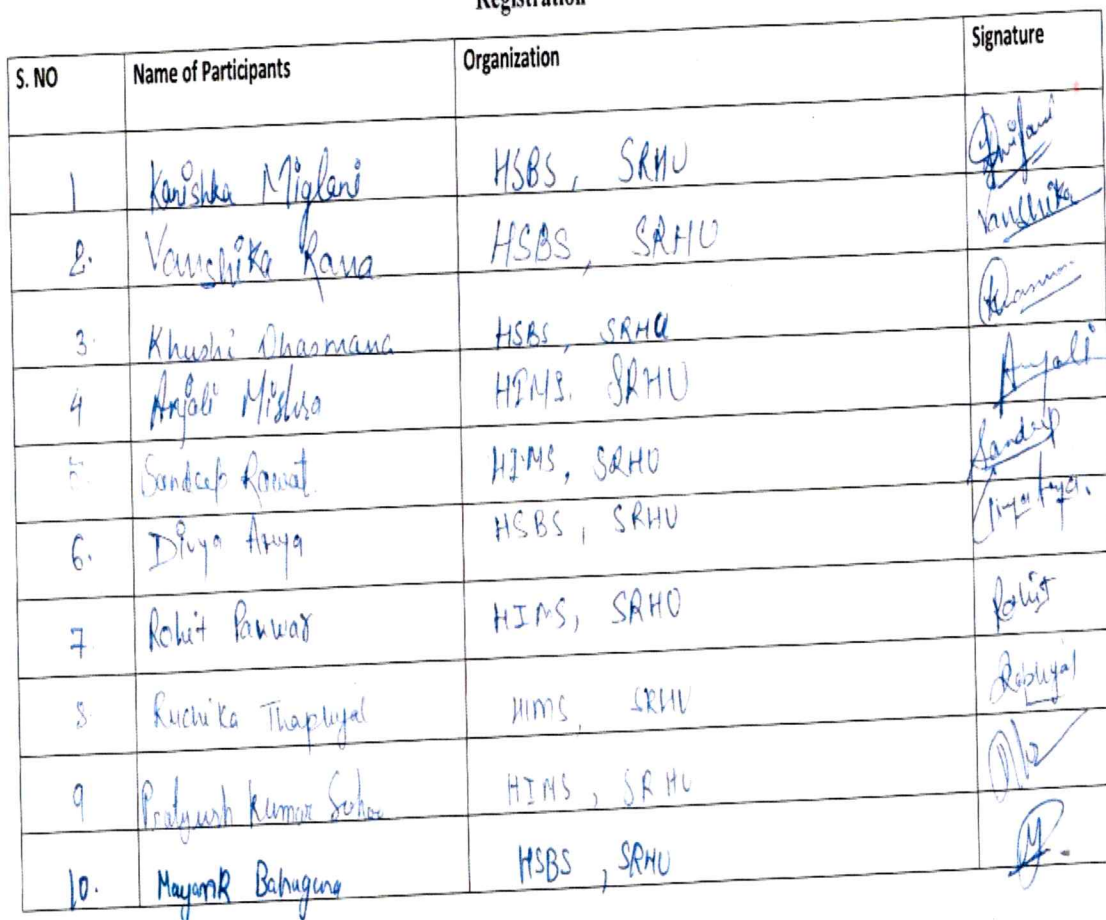 Registration
S. NO Name of Participants Organization Signature
1 Kanishka Miglani HSBS, SRHU
2. Vanshika Rana HSBS, SRHU Vanshika
3. Khushi Dhasmana HSBS, SRHU
4 Anjali Mishra HIMS. SRHU Anjali
5. Sandeep Rawat HIMS, SRHU Sandeep
6. Divya Arya HSBS, SRHU Divya Arya.
7. Rohit Panwar HIMS, SRHU Rohit
8. Ruchika Thapliyal HIMS, SRHU
9 Pratyush Kumar HIMS, SRHU
10. Mayank Bahuguna HSBS, SRHU